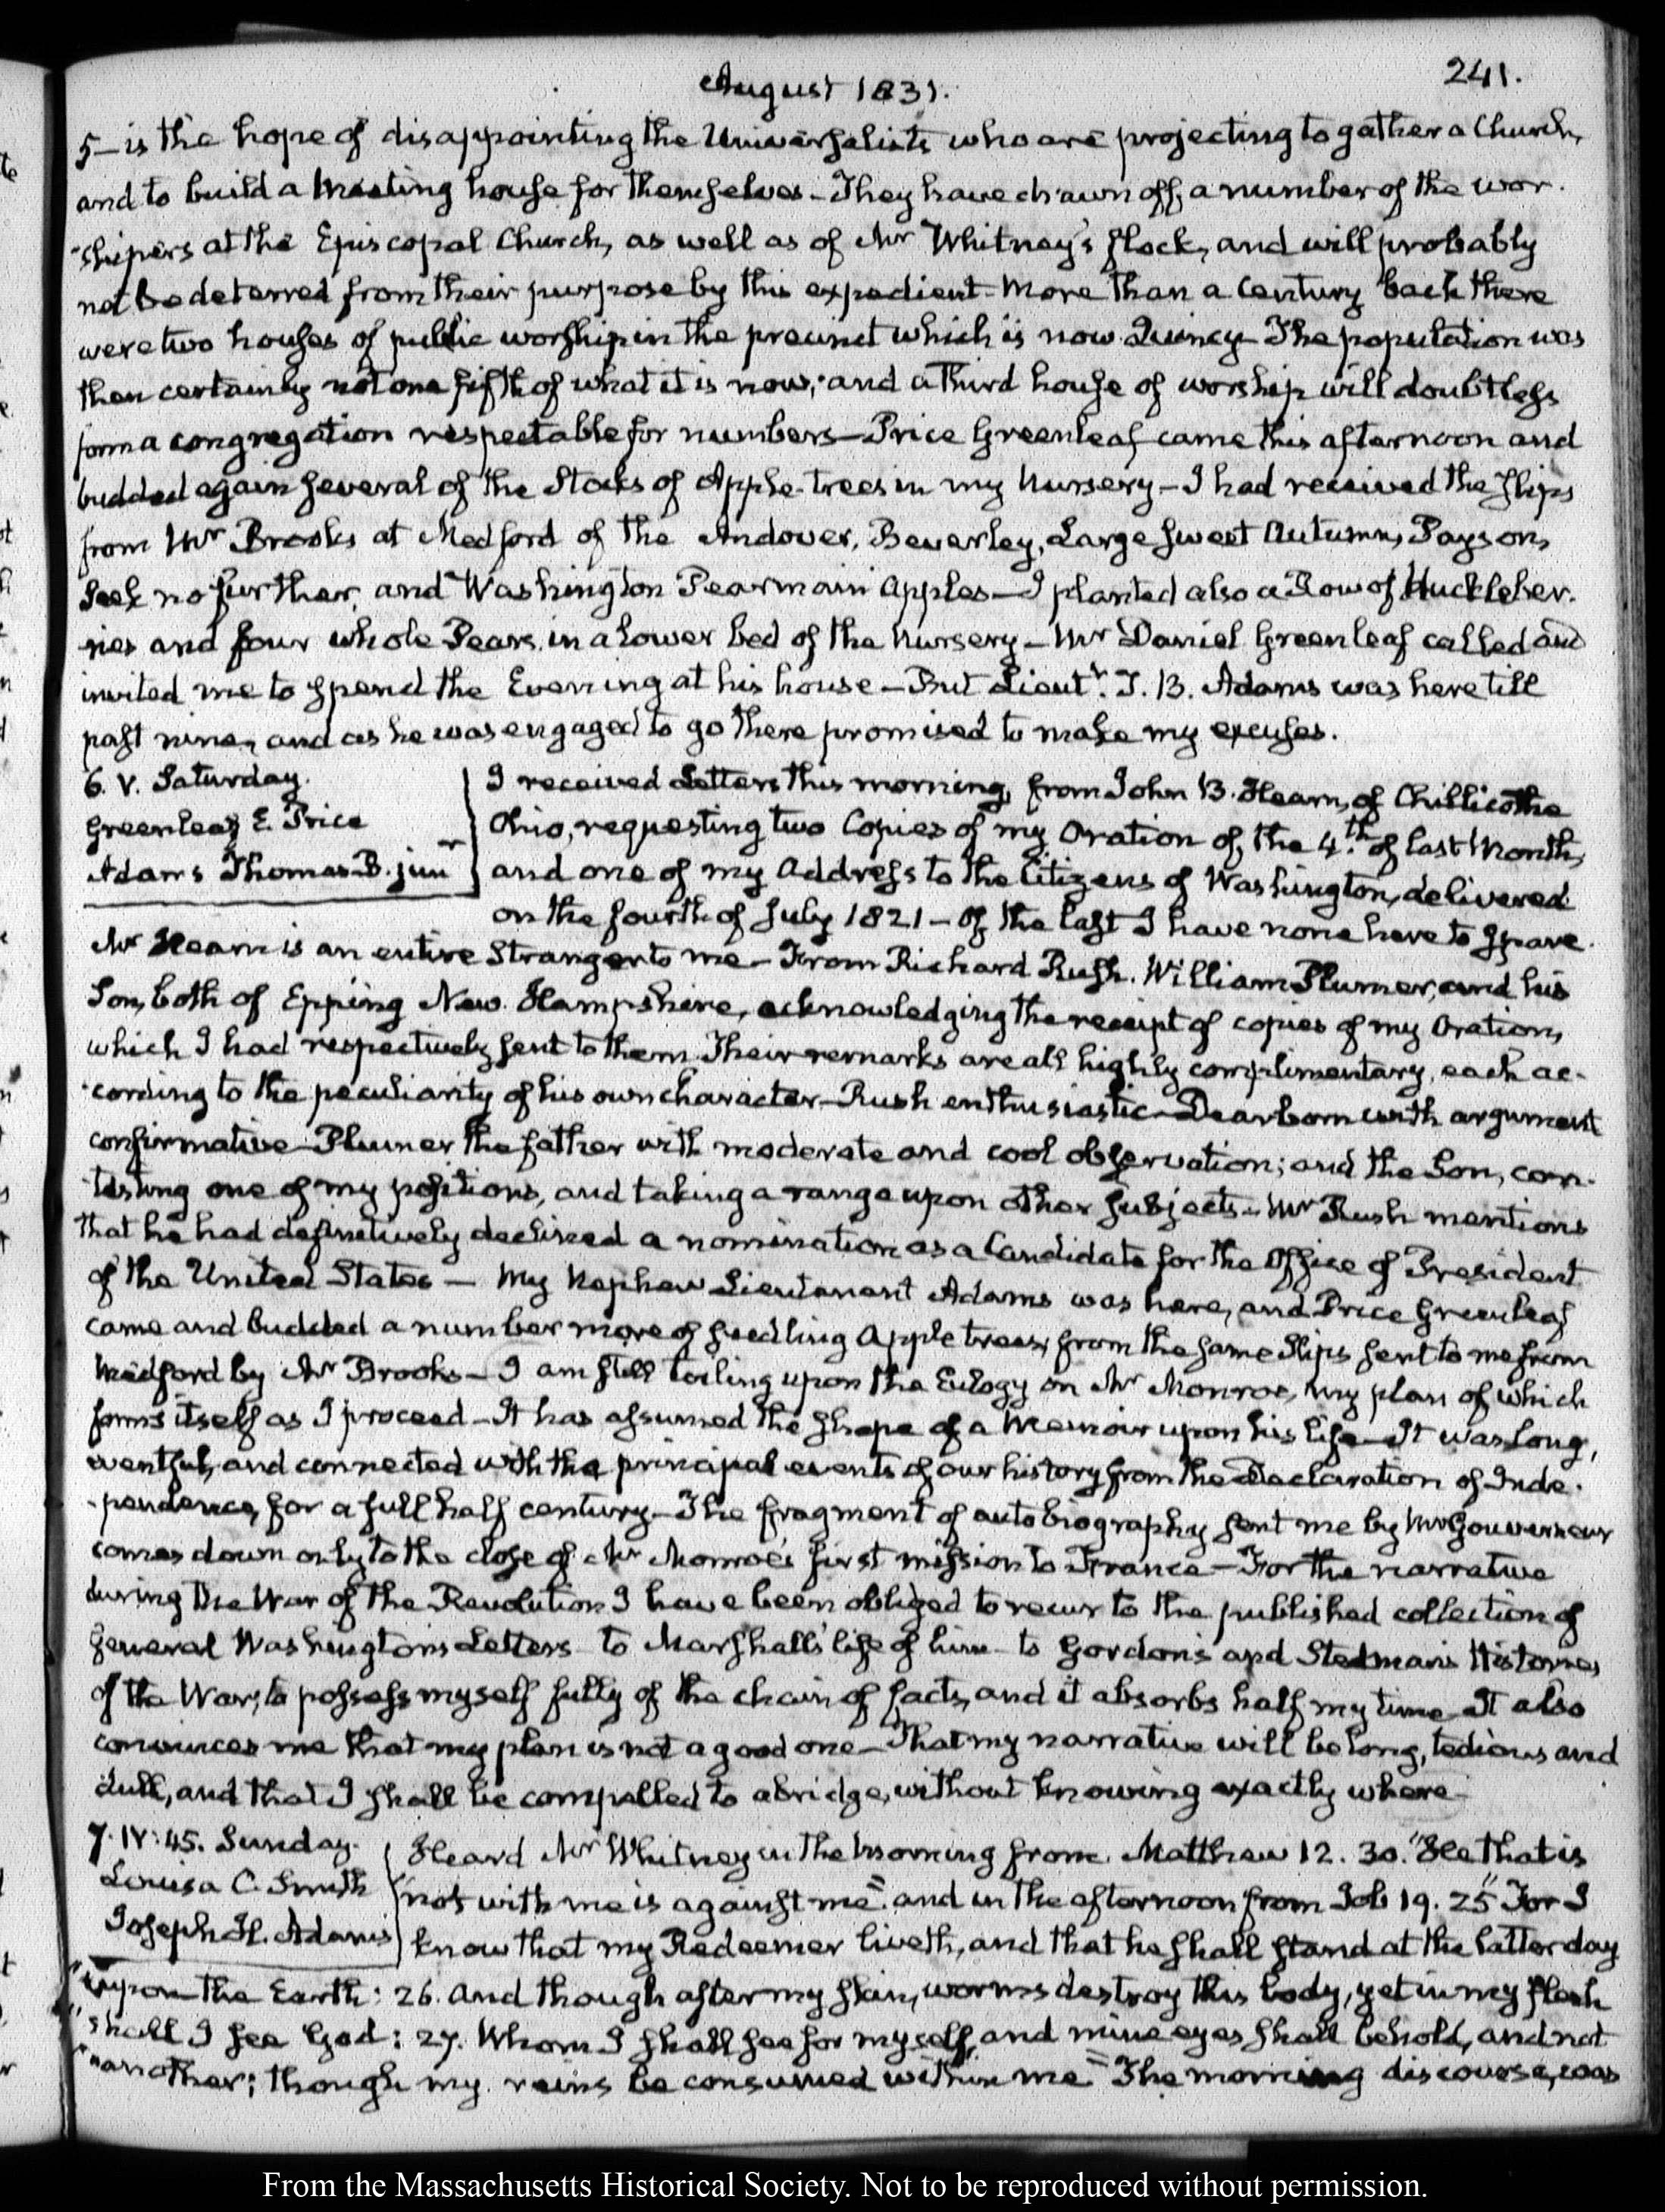 August 1831.
241.
5— is the hope of disappointing the Universalists who are projecting to gather a Church,
and to build a Meeting house for themselves — They have drawn off, a number of the wor-
-shipers at the Episcopal Church, as well as of Mr Whitney's flock, and will probably
not be deterred from their purpose by this expedient — More than a Century back there
were two houses of public worship in the precinct which is now Quincy — The population was
then certainly not one fifth of what it is now; and a third house of worship will doubtless
form a congregation respectable for numbers — Price Greenleaf came this afternoon and
budded again several of the Stocks of Apple-trees in my Nursery — I had received the slips
from Mr Brooks at Medford of the Andover, Beverley, Large Sweet Autumn, Payson,
Seek no further, and Washington Pearmain Apples — I planted also a Row of Huckleber-
-ries and four whole Pears, in a lower bed of the Nursery — Mr Daniel Greenleaf called and
invited me to spend the Evening at his house — But Lieutt. T. B. Adams was here till
past nine, and as he was engaged to go there promised to make my excuses.
6. V. Saturday.
Greenleaf E. Price
Adams Thomas B. junr
I received Letters this morning, from John B. Hearn, of Chillicothe
Ohio, requesting two Copies of my Oration of, the 4.th of last Month,
and one of my Address to the Citizens of Washington, delivered
on the fourth of July 1821 — Of the last I have none here to spare.
Mr Hearn is an entire Stranger to me — From Richard Rush. William Plumer, and his
Son, both of Epping New Hampshire, acknowledging the receipt of copies of my Oration,
which I had respectively sent to them. Their remarks are all highly complimentary, each ac-
-cording to the peculiarity of his own character — Rush enthusiastic — Dearborn with argument
confirmative — Plumer the father with moderate and cool observation; and the Son, con-
-testing one of my positions, and taking a range upon other subjects — Mr Rush mentions
that he had definitively declined a nomination as a Candidate for the Office of President
of the United States — My Nephew Lieutenant Adams was here, and Price Greenleaf
came and budded a number more of seedling Apple trees, from the same Slips sent to me from
Medford by Mr Brooks — I am still toiling upon the Eulogy on Mr Monroe, my plan of which
forms itself as I proceed — It has assumed the shape of a Memoir upon his life — It was long,
eventful, and connected with the principal events of our history from the Declaration of Inde-
-pendence, for a full half century — The fragment of autobiography sent me by Mr Gouverneur
comes down only to the close of Mr Monroe's first mission to France — For the narrative
during the War of the Revolution I have been obliged to recur to the published collection of
General Washington's Letters — to Marshall's life of him — to Gordon's and Stedman's Histories
of the War, to possess myself fully of the chain of facts, and it absorbs half my time — It also
convinces me that my plan is not a good one — That my narrative will be long, tedious and
dull, and that I shall be compelled to abridge, without knowing exactly where —
7. IV:45. Sunday.
Louisa C. Smith
Joseph H. Adams
Heard Mr Whitney in the morning from Matthew 12. 30. "He that is
"not with me is against me" and in the afternoon from Job 19. 25 "For I
know that my Redeemer liveth, and that he shall stand at the latter day
"upon the Earth: 26. And though after my skin, worms destroy this body, yet in my flesh
"shall I see God: 27. Whom I shall see for myself, and mine eyes shall behold, and not
"another; though my reins be consumed within me" The morning discourse, was
From the Massachusetts Historical Society. Not to be reproduced without permission.